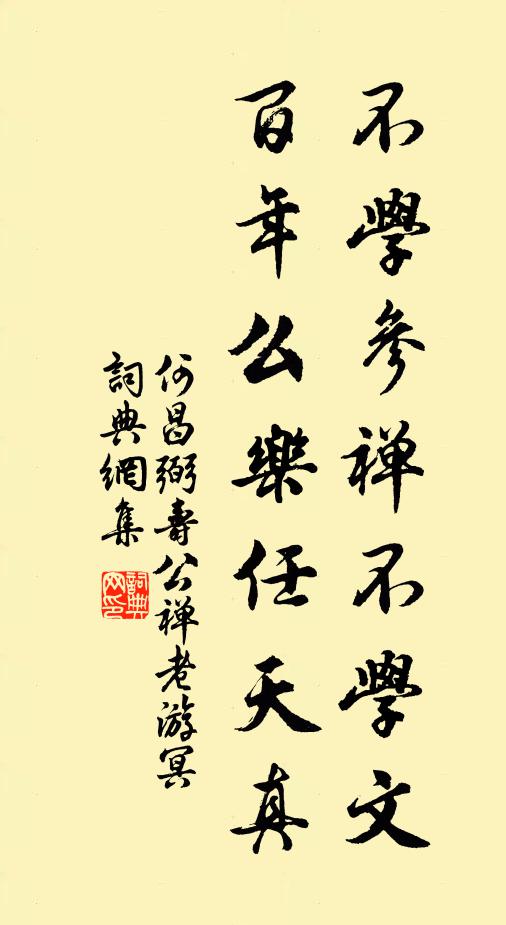 不學參禅不學文
百年么樂任天真
何昌弼壽公禅老游冥
詞典網集
詞典网印